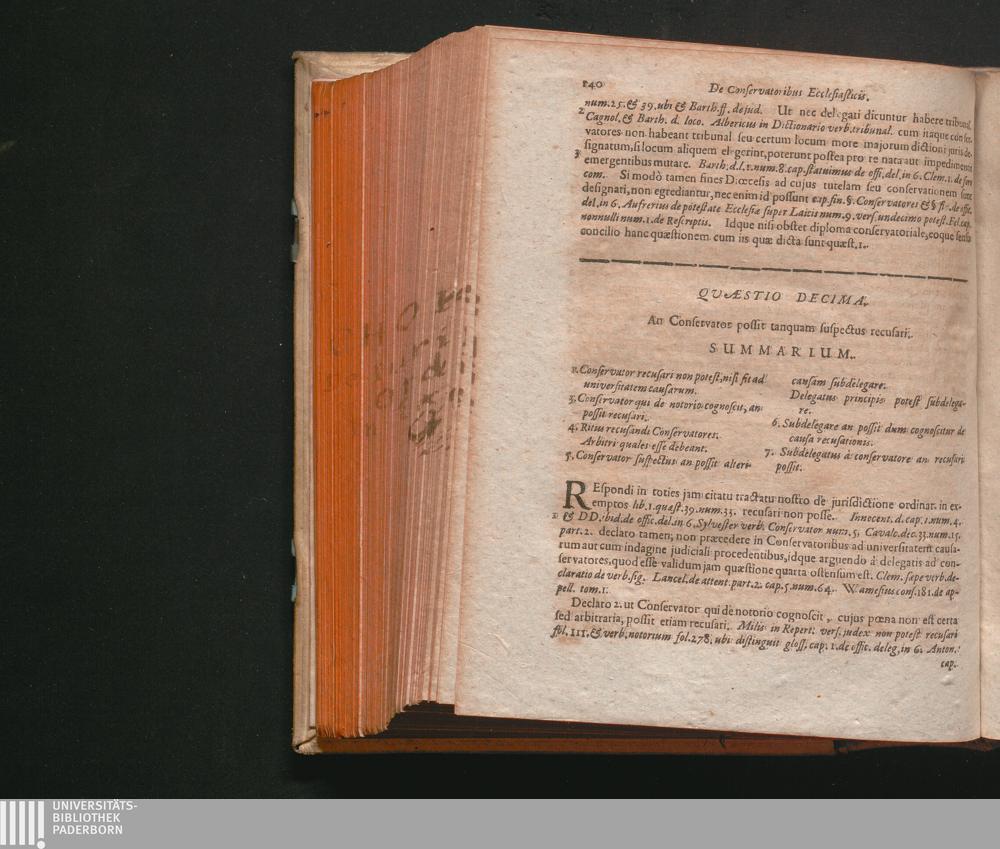 140
De Conservatoribus Ecclesiasticis.
num.25.& 39.ubi & Barth.ff. dejud. Ut nec delegati dicuntur habere tribunal
2 Cagnol.& Barth. d. loco. Albericus in Dictionario verb.tribunal. cum itaque conser-
vatores non habeant tribunal seu certum locum more majorum dictioni juris de-
signatum,si locum aliquem elegerint,poterunt postea pro re nata aut impedimenti
3 emergentibus mutare. Barth.d.l.1.num.8.cap.statuimus de offi.del.in 6.Clem.1.de foro
com. Si modò tamen fines Diœcesis ad cujus tutelam seu conservationem sunt
designati,non egrediantur,nec enim id possunt cap.fin.§.Conservatores & § fi-.de offic.
del.in 6. Aufrerius de potestate Ecclesiæ super Laicis num.9.vers.undecimo potest.Fel.cap.
nonnulli num.1.de Rescriptis. Idque nisi obstet diploma conservatoriale,eoque sensu
concilio hanc quæstionem cum iis quæ dicta sunt quæst.1.
QVÆSTIO DECIMA.
An Conservator possit tanquam suspectus recusari.
SUMMARIUM.
1. Conservator recusari non potest,nisi fit ad
universitatem causarum.
3. Conservator qui de notorio cognoscit, an
possit recusari.
4. Ritus recusandi Conservatores.
Arbitri quales esse debeant.
5. Conservator suspectus an possit alteri
causam subdelegare.
Delegatus principis potest subdelega-
re.
6. Subdelegare an possit dum cognoscitur de
causa recusationis.
7. Subdelegatus à conservatore an recusari
possit.
REspondi in toties jam citatu tractatu nostro de jurisdictione ordinar. in ex-
emptos lib.1.quæst.39.num.33. recusari non posse. Innocent.d.cap.1.num.4.
1 & DD.ibid.de offic.del.in 6.Sylvester verb. Conservator num.5. Cavalc.dec.33.num.15.
part.2. declaro tamen, non præcedere in Conservatoribus ad universitatem causa-
rum aut cum indagine judiciali procedentibus,idque arguendo à delegatis ad con-
servatores,quod esse validum jam quæstione quarta ostensum est. Clem.sæpe verb.de-
claratio de verb.sig. Lancel.de attent.part.2. cap.5.num.64. Wamesius cons.181.de ap-
pell. tom.1.
Declaro 2.ut Conservator qui de notorio cognoscit, cujus pœna non est certa
sed arbitraria, possit etiam recusari. Milis in Repert. vers.judex non potest recusari
fol.111.& verb.notorium fol.278. ubi distinguit gloss.cap.1.de offic.deleg.in 6. Anton.
cap.
UNIVERSITÄTS-
BIBLIOTHEK
PADERBORN